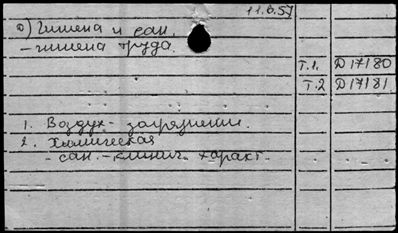 11.6.57
о) Гигиена и сан.
- гигиена труда.
Т.1. Д 17180
Т.2 Д 17181.
1. Воздух - загрязнения.
2. Химическая
- сан. - клинич. характ.